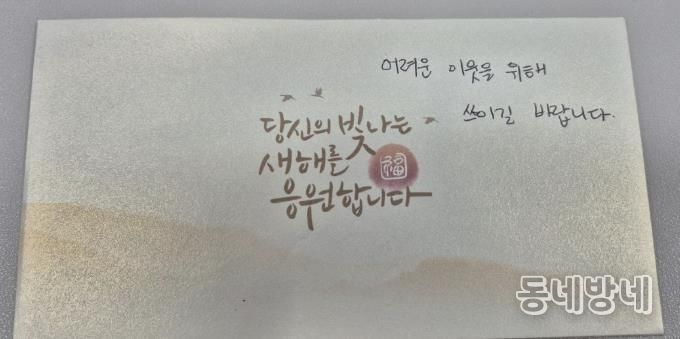 어려운 이웃을 위해
쓰이길 바랍니다.
당신의 빛나는
새해를
福
응원합니다
동네방네